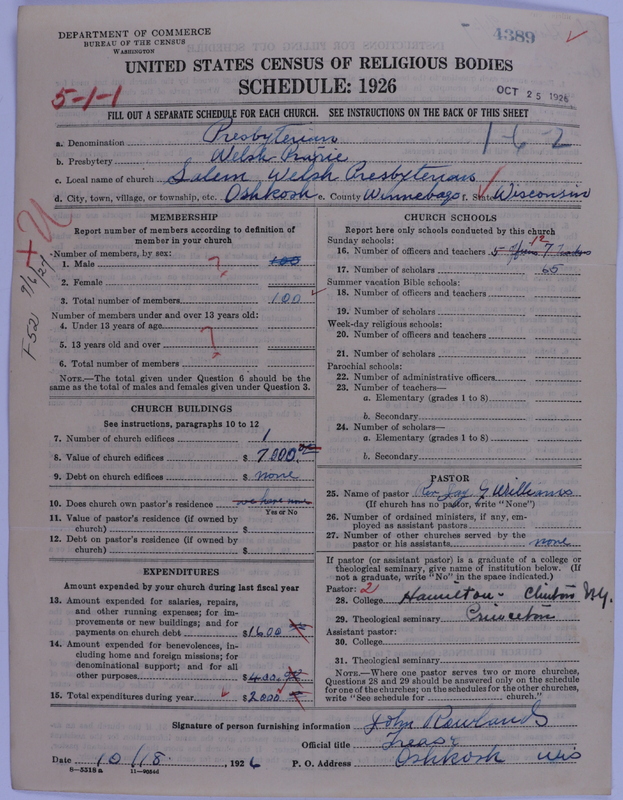 DEPARTMENT OF COMMERCE
BUREAU OF THE CENSUS
WASHINGTON
4389
UNITED STATES CENSUS OF RELIGIOUS BODIES
SCHEDULE: 1926
OCT 25 1926
5-1-1
FILL OUT A SEPARATE SCHEDULE FOR EACH CHURCH. SEE INSTRUCTIONS ON THE BACK OF THIS SHEET
1-6-2
a. Denomination Presbyterian
b. Presbytery Welsh Prairie
c. Local name of church Salem Welsh Presbyterian
d. City, town, village, or township, etc. Oshkosh e. County Winnebago f. State Wisconsin
MEMBERSHIP
Report number of members according to definition of
member in your church
Number of members, by sex:
1. Male ? 100
2. Female
3. Total number of members 100
Number of members under and over 13 years old:
4. Under 13 years of age
5. 13 years old and over ?
6. Total number of members
NOTE.—The total given under Question 6 should be the
same as the total of males and females given under Question 3.
CHURCH BUILDINGS
See instructions, paragraphs 10 to 12
7. Number of church edifices 1
8. Value of church edifices $ 7000.00
9. Debt on church edifices $ none
10. Does church own pastor's residence we have none
Yes or No
11. Value of pastor's residence (if owned by
church) $
12. Debt on pastor's residence (if owned by
church) $
EXPENDITURES
Amount expended by your church during last fiscal year
13. Amount expended for salaries, repairs,
and other running expenses; for im-
provements or new buildings; and for
payments on church debt $1600
14. Amount expended for benevolences, in-
cluding home and foreign missions; for
denominational support; and for all
other purposes $400.
15. Total expenditures during year $2000
CHURCH SCHOOLS
Report here only schools conducted by this church
Sunday schools:
12
16. Number of officers and teachers 5 7
17. Number of scholars 65
Summer vacation Bible schools:
18. Number of officers and teachers
19. Number of scholars
Week-day religious schools:
20. Number of officers and teachers
21. Number of scholars
Parochial schools:
22. Number of administrative officers
23. Number of teachers—
a. Elementary (grades 1 to 8)
b. Secondary
24. Number of scholars—
a. Elementary (grades 1 to 8)
b. Secondary
PASTOR
25. Name of pastor Rev. Jay G Williams
(If church has no pastor, write "None")
26. Number of ordained ministers, if any, em-
ployed as assistant pastors
27. Number of other churches served by the
pastor or his assistants none
If pastor (or assistant pastor) is a graduate of a college or
theological seminary, give name of institution below. (If
not a graduate, write "No" in the space indicated.)
Pastor: 2
28. College Hamilton - Clinton N.Y.
29. Theological seminary Princeton
Assistant pastor:
30. College
31. Theological seminary
NOTE.—Where one pastor serves two or more churches,
Questions 28 and 29 should be answered only on the schedule
for one of the churches; on the schedules for the other churches,
write "See schedule for church."
Signature of person furnishing information John Rowlands
Official title Treas.
Date 10/18, 1926 P. O. Address Oshkosh Wis
8-5318 a